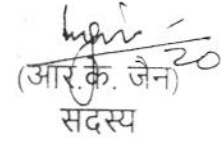 (आर.के. जैन)
सदस्य